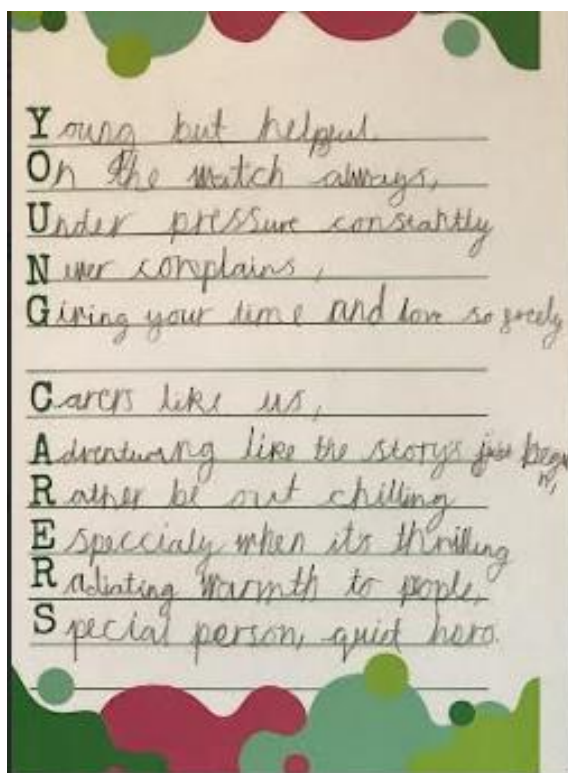 Young but helpful.
On the watch always,
Under pressure constantly
Never complains,
Giving your time and love so freely
Carers like us,
Adventuring like the story's just begun,
Rather be out chilling
Especcialy when its thrilling
Radiating warmth to people,
Special person, quiet hero.